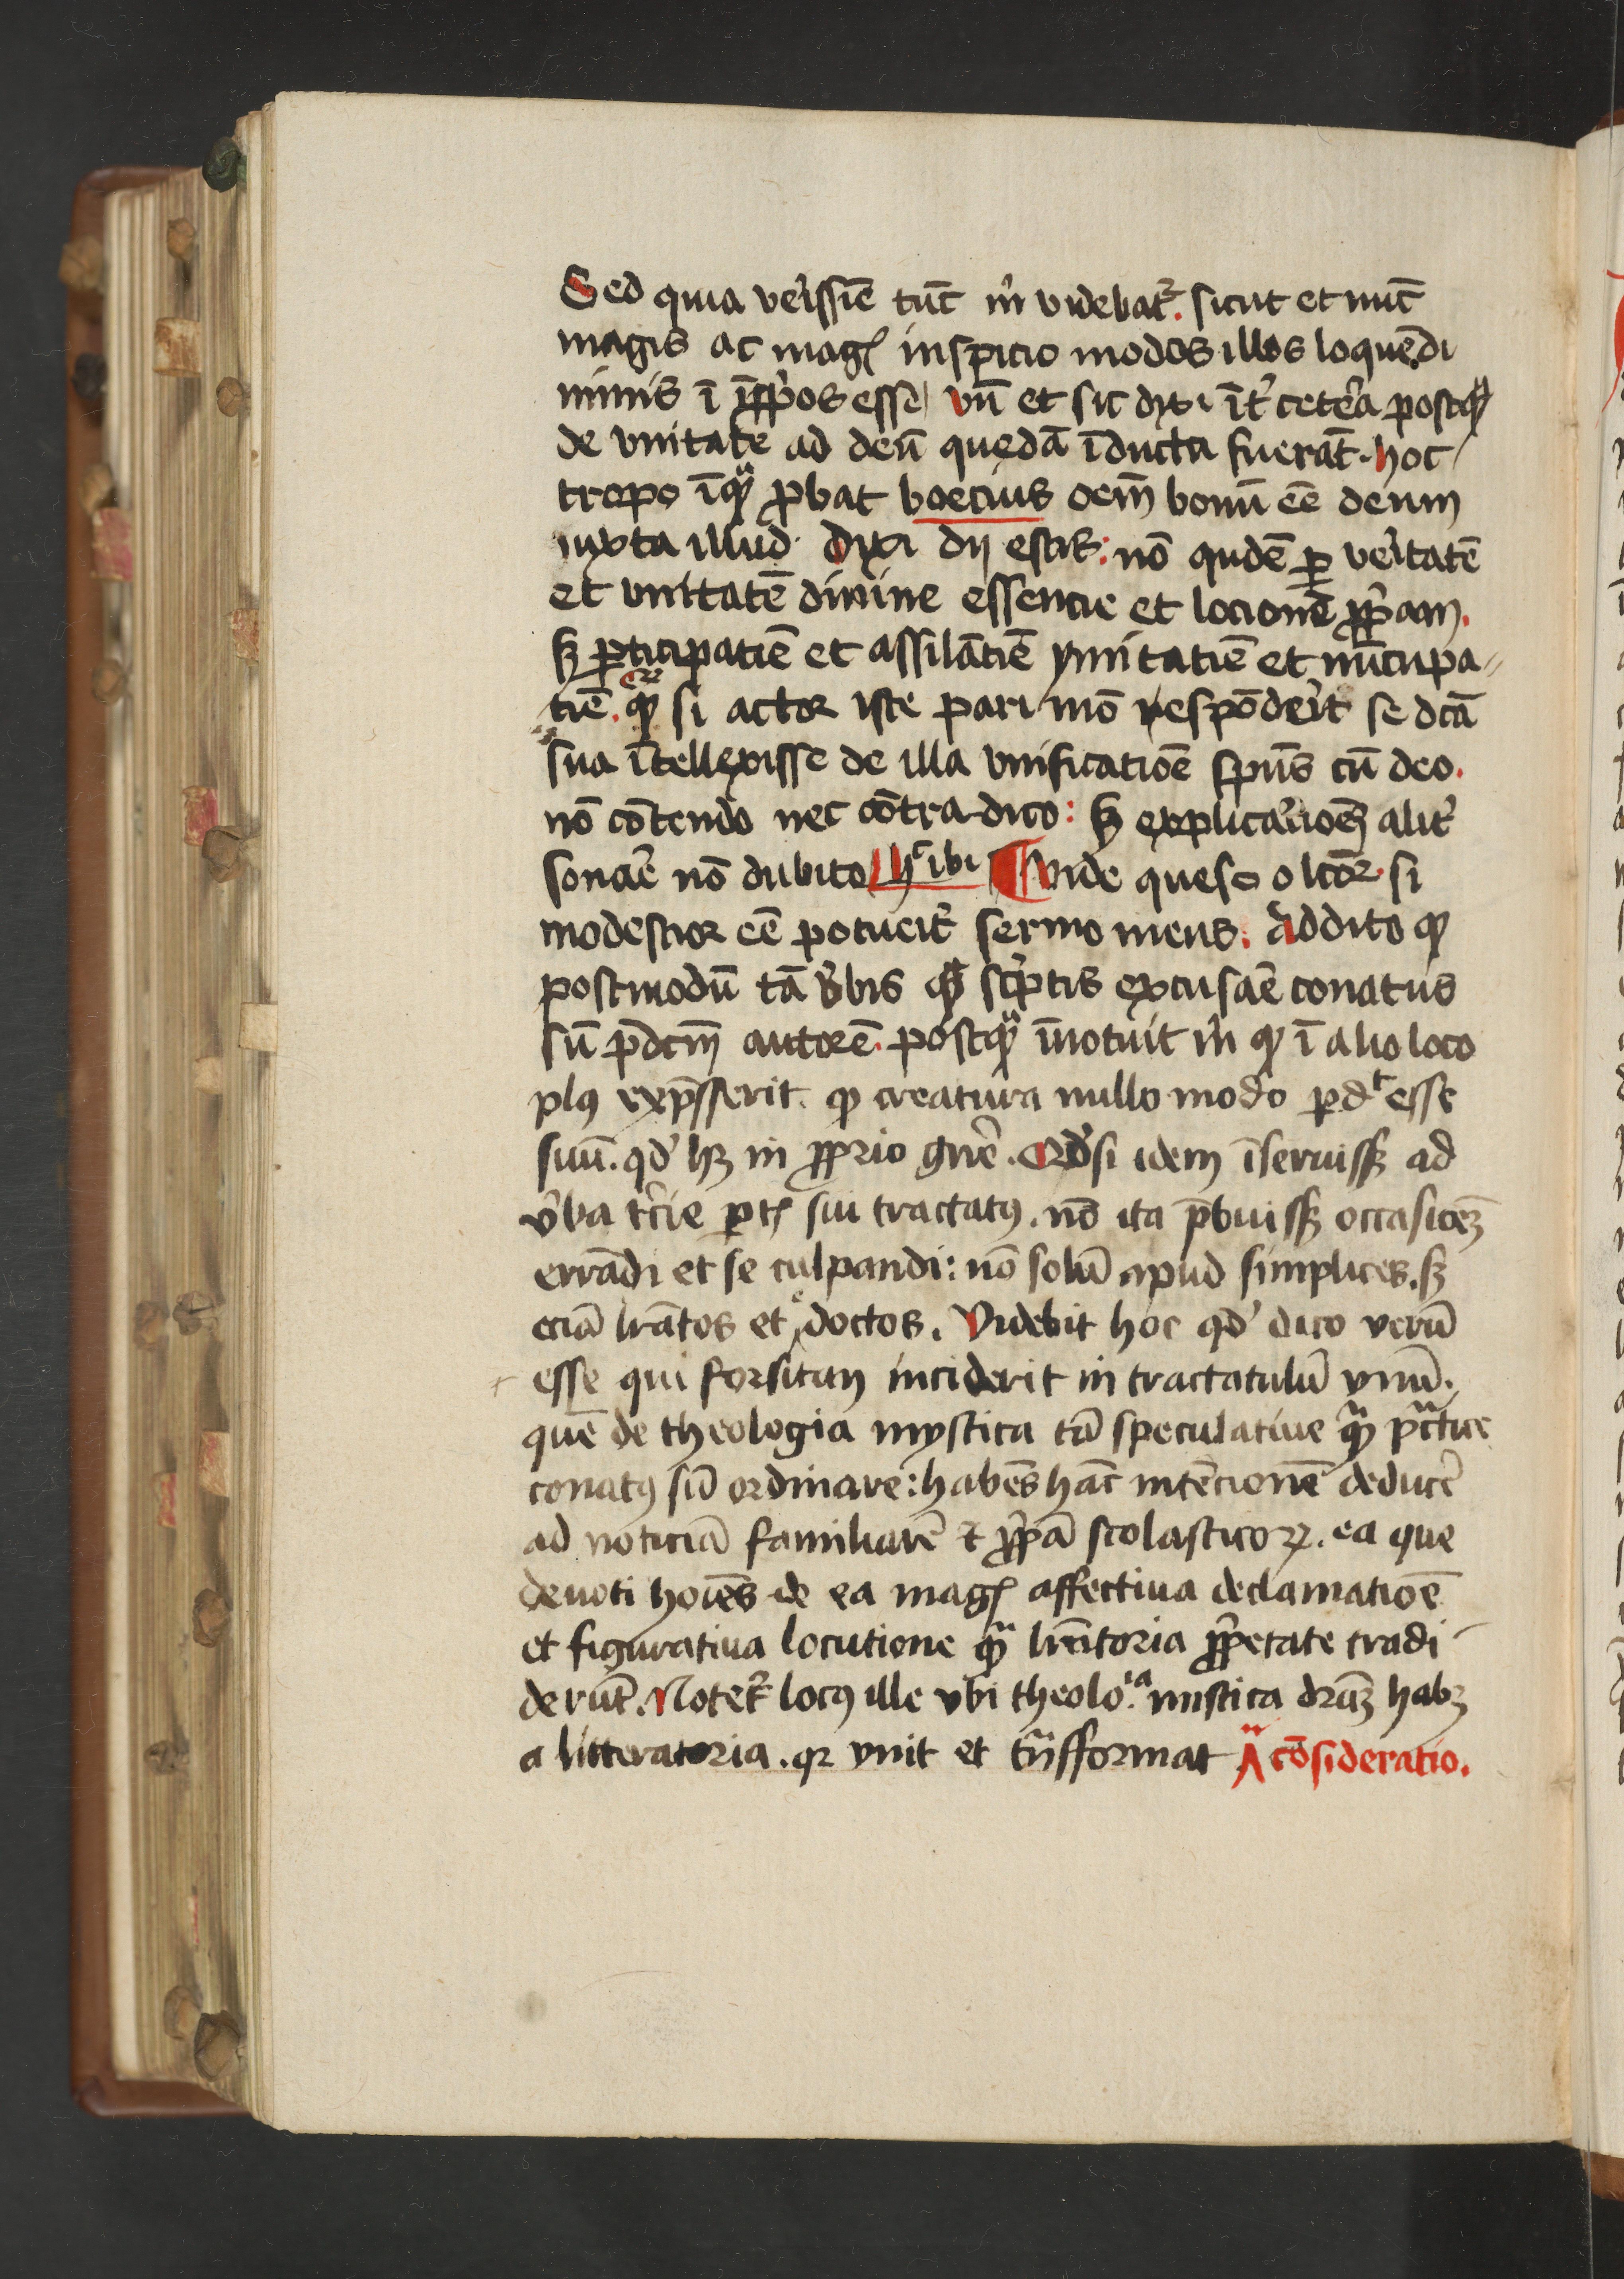 Sed quia verissīe tūc m̄ videbat᷑. sicut et nūc
magis ac magꝭ inspicio modos illos loquēdi
nimis ī īꝓp̄os esse vn̄ et sic dixi īt᷑ cetēra postqͣꝫ
de vnitate ad deū quedā īducta fuerāt. hoc
tropo īqͣꝫ ꝓbat boecius oēm bonū eē deum
iuxta illud. dixi dij estis: nō qudē ꝑ veritatē
et vnitatē diuine essencie et locionē ꝓp̄am.
sꝫ ꝑticipatiē et assilātiē ymitatiē et nūcupa〃
tiē. ꝙ si actor iste pari mō respōderit se dc̄a
sua ītellexisse de illa vnificatiōe sp̄us cū deo.
nō cōtendo nec cōtradico: sꝫ explicac̄ioēꝫ alit᷑
sonāe nō dubito hͨ ibi ¶ Vide queso o lc̄or. si
modestior eē potuerit sermo meus. Addito ꝙ
postmodū tā v̄bis qͣꝫ sc̄ptis excusāe conatus
sū p̄dc̄m autorē. postqͣꝫ īnotuit m̄ ꝙ ī alio loco
plꝰ exp̄sserit. ꝙ creatura nullo modo ꝑdᵗ esse
suū. qd̄ hꝫ in ꝓprio gn̄e. Qd̄ si idem īseruissꝫ ad
v̄ba t̄cie ꝑtꝭ sui tractatꝰ. nō ita p̄buissꝫ occasiōeꝫ
errādi et se culpandi: nō solū apud simplices. sꝫ
eciā lrātos et doctos. Videbit hoc qd̄ dico verū
esse qui forsitan inciderit in tractatulū vnū.
quē de theologia mystica tā speculatiue qͣꝫ pͣctice
conatꝰ sū ordinare: habēs hāc intēcionē deducē
ad noticiā familiarē ⁊ ꝓp̄ā scolasticoꝝ. ea que
deuoti hoīes de ea magꝭ affectiua declamatiōe
et figuratiua locutione qͣꝫ lr̄atoria ꝓp̄etate tradi
derūt. Notet᷑ locꝰ ille vbi theoloⁱᵃ. mistica dr̄aꝫ habꝫ
a litteratoria. qꝛ vnit et tn̄sformat cōsideratio.